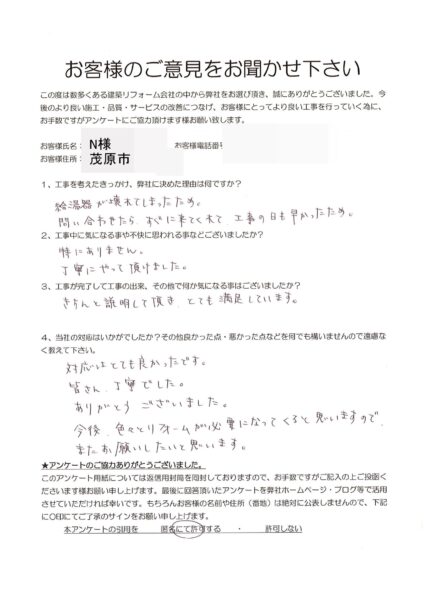 お客様のご意見をお聞かせ下さい
この度は数多くある建築リフォーム会社の中から弊社をお選び頂き、誠にありがとうございました。今
後のより良い施工・品質・サービスの改善につなげ、お客様にとってより良い工事を行っていく為に、
お手数ですがアンケートにご協力頂けます様お願い致します。
お客様氏名： N様 お客様電話番号
お客様住所： 茂原市
1、工事を考えたきっかけ、弊社に決めた理由は何ですか？
給湯器が壊れてしまったため。
問い合わせたら、すぐに来てくれて 工事の日も早かったため。
2、工事中に気になる事や不快に思われる事などございましたか？
特にありません。
丁寧にやって頂けました。
3、工事が完了して工事の出来、その他で何か気になる事はございましたか？
きちんと説明して頂き、とても満足しています。
4、当社の対応はいかがでしたか？その他良かった点・悪かった点などを何でも構いませんので遠慮な
く教えて下さい。
対応はとても良かったです。
皆さん、丁寧でした。
ありがとう ございました。
今後、色々とリフォームが必要になってくると思いますので、
またお願いしたいと思います。
★アンケートのご協力ありがとうございました。
このアンケート用紙については返信用封筒を同封しておりますので、お手数ですがご記入の上ご投函く
ださいます様お願い申し上げます。最後に回答頂いたアンケートを弊社ホームページ・ブログ等で活用
させていただければ幸いです。もちろんお客様の名前や住所（番地）は絶対に公表しませんので、下記
に〇印にてご了承のサインをお願い申し上げます。
本アンケートの引用を 匿名にて許可する ・ 許可しない